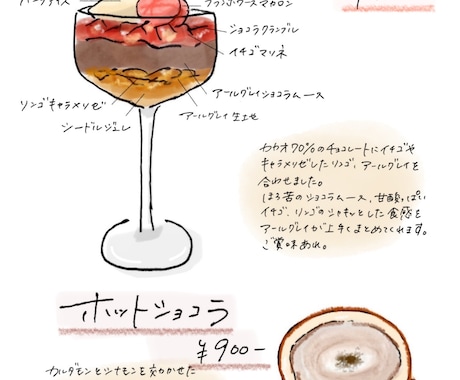 フランボワーズマカロン
ショコラクランブル
イチゴマリネ
アールグレイショコラムース
アールグレイ生地
リンゴキャラメリゼ
シードルジュレ
カカオ70%のチョコレートにイチゴや
キャラメリゼしたリンゴ、アールグレイを
合わせました。
ほろ苦のショコラムース、甘酸っぱい
イチゴ、リンゴのシャキッとした食感を
アールグレイが上手くまとめてくれます。
ご賞味あれ。
ホットショコラ
¥900-
カルダモンとシナモンを効かせた